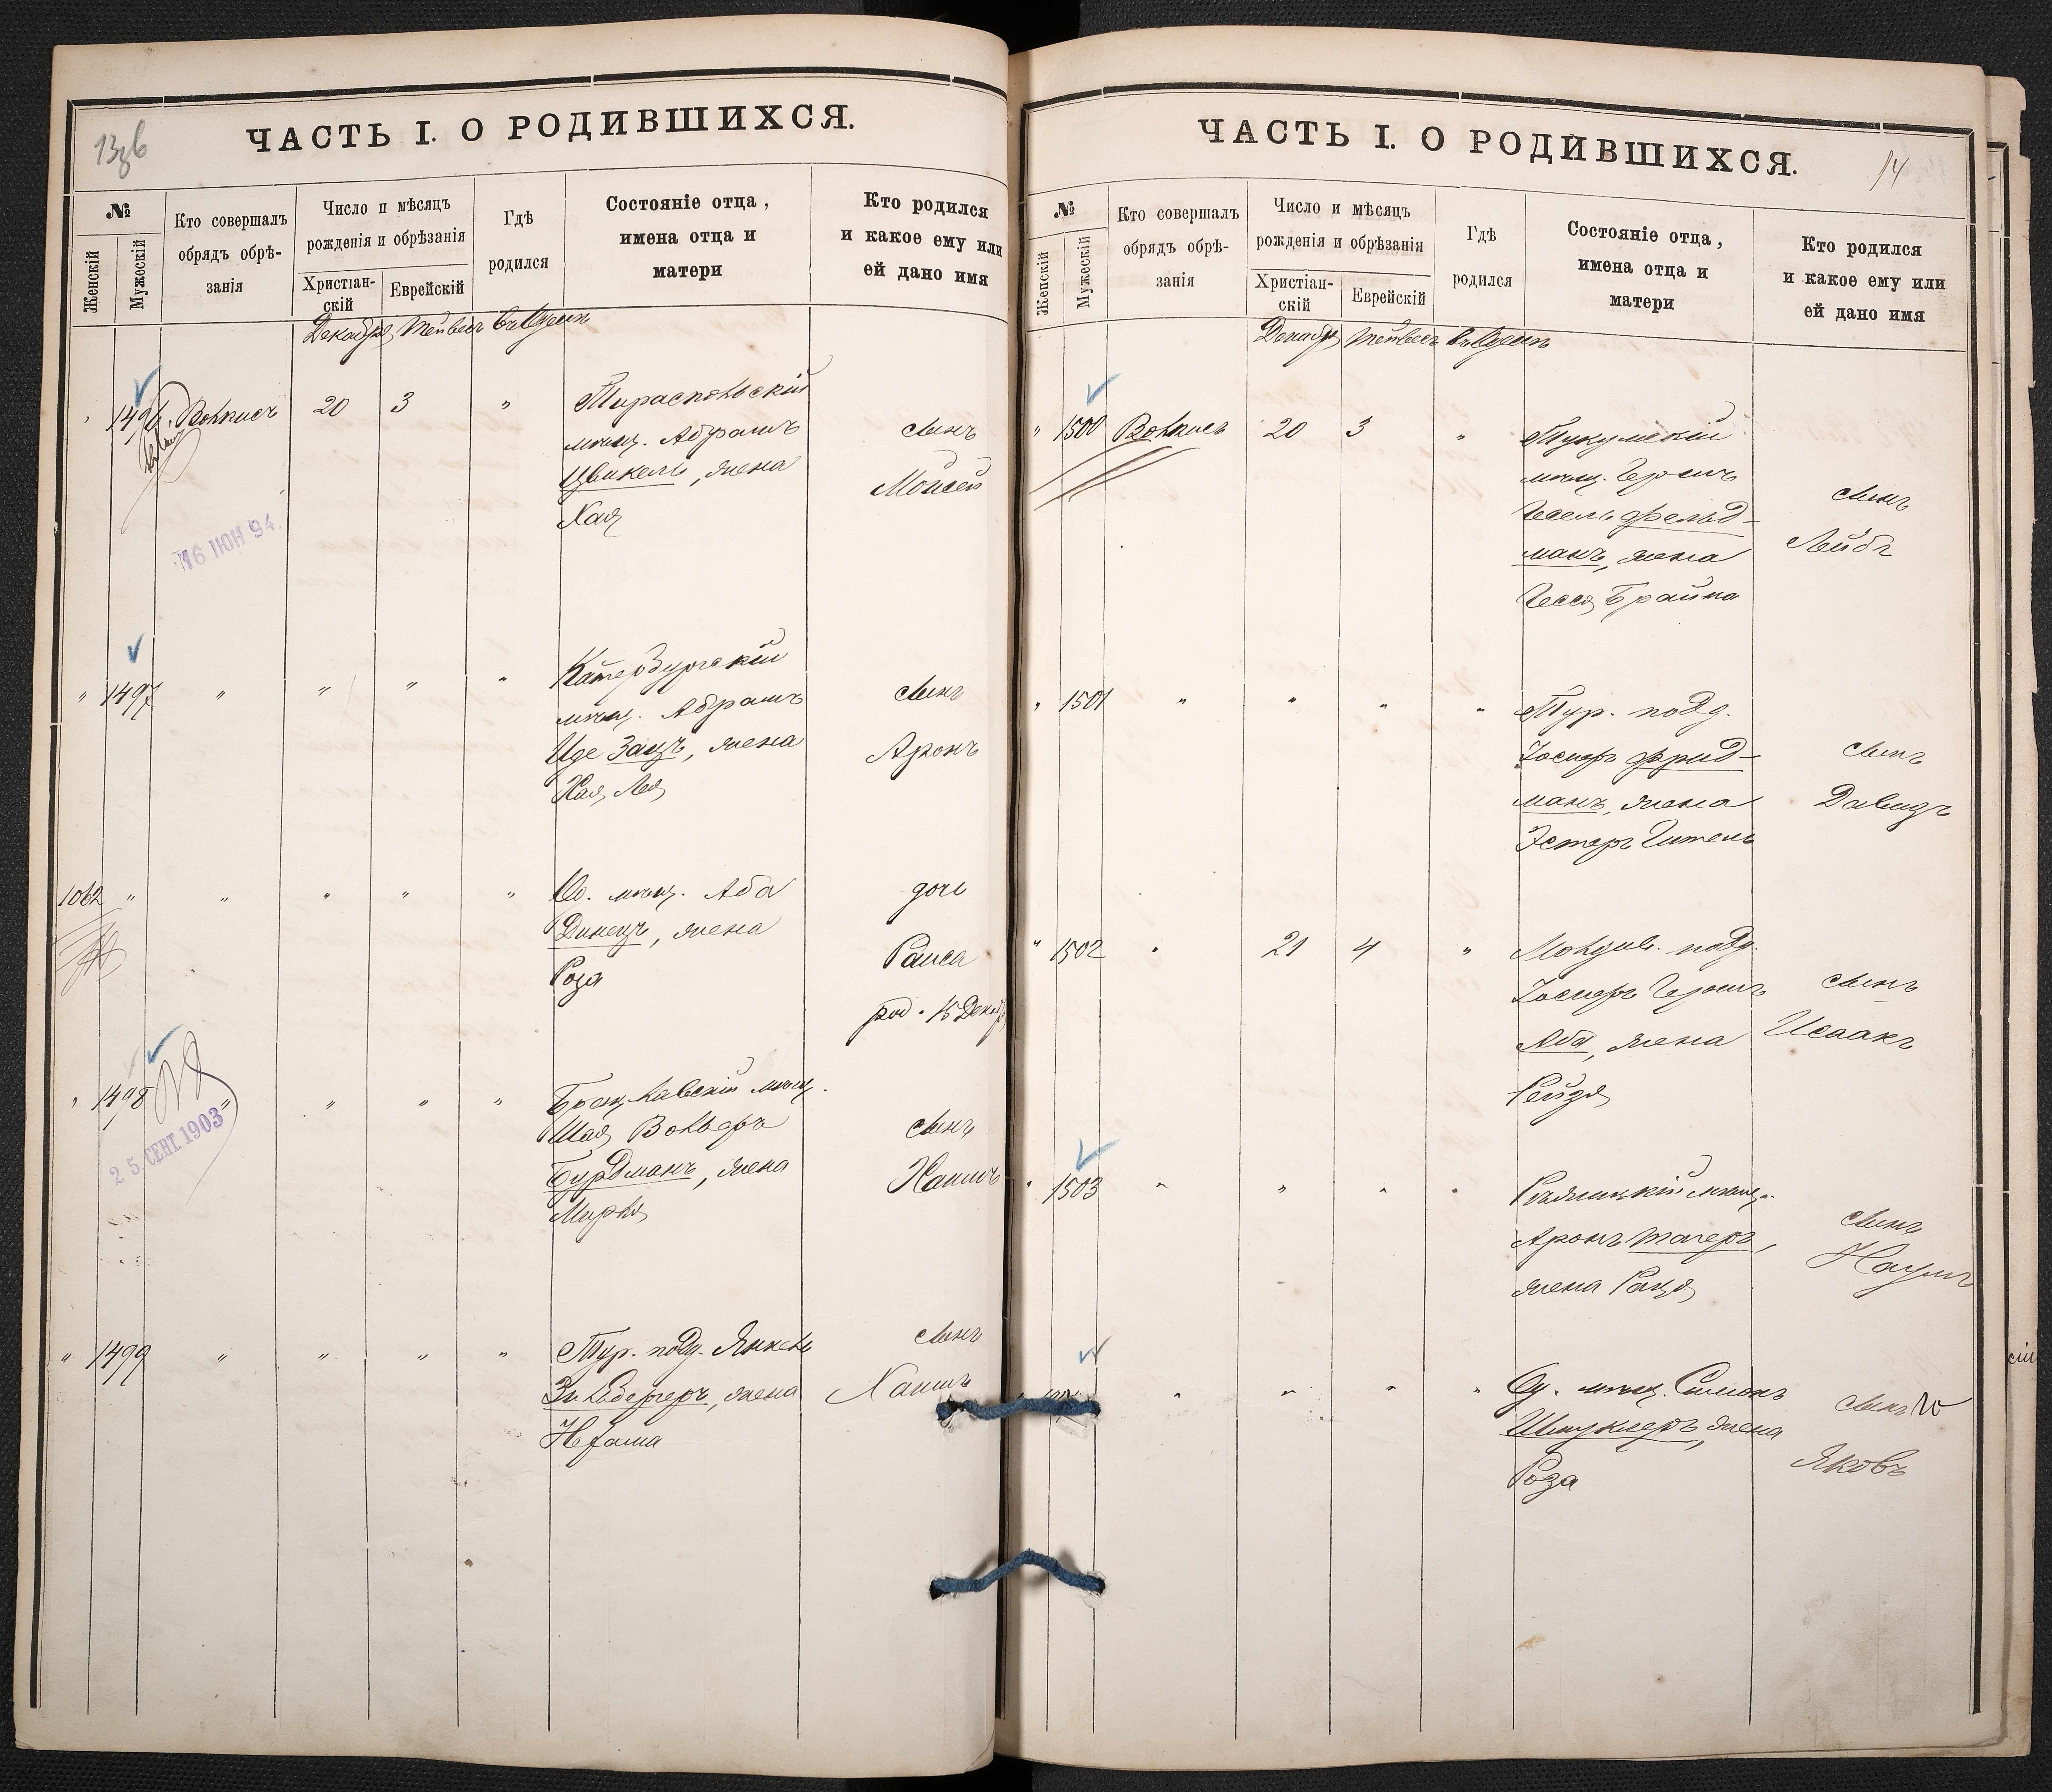 13зб
ЧАСТЬ I. О РОДИВШИХСЯ.
№
Женскій
Мужескій
Кто совершалъ
обрядъ обрѣ-
занія
Число и мѣсяцъ
рожденія и обрѣзанія
Христіан-
скій
Еврейскій
Гдѣ
родился
Состояніе отца,
имена отца и
матери
Кто родился
и какое ему или
ей дано имя
Декабря Тейвесъ въ Одессѣ
" 1496. Волкисъ 20 3 "
Тираспольскій
мѣщ. Абрамъ
Цвикель, жена
Хая
сынъ
Мойсей
16 ІЮН 94.
" 1497 " " " "
Катербургскій
мѣщ. Абрамъ
Иде Зацъ, жена
Хая Лея
сынъ
Аронъ
1062 " " " " "
Од. мѣщ. Аба
Динецъ, жена
Роза
дочь
Раиса
род. 15 Декабр
" 1498 " " " "
25 СЕНТ 1903
Брацлавскій мѣщ.
Шая Вольфъ
Бурдманъ, жена
Мирля
сынъ
Хаимъ
" 1499 " " " " "
Тур. подд. Янкель
Зильбергеръ, жена
Нехама
сынъ
Хаимъ
ЧАСТЬ I. О РОДИВШИХСЯ.
14
№
Женскій
Мужескій
Кто совершалъ
обрядъ обрѣ-
занія
Число и мѣсяцъ
рожденія и обрѣзанія
Христіан-
скій
Еврейскій
Гдѣ
родился
Состояніе отца,
имена отца и
матери
Кто родился
и какое ему или
ей дано имя
Декабря Тейвесъ въ Одессѣ
" 1500 Волкисъ 20 3 "
Тукумскій
мѣщ. Гершъ
Іосель Фельд-
манъ, жена
Гесся Брайна
сынъ
Лейбъ
" 1501 " " " "
Тур. подд.
Іосифъ Фрид-
манъ, жена
Эстеръ Гитель
сынъ
Давидъ
" 1502 " 21 4 "
Молдав. подд.
Іосифъ Гершъ
Аба, жена
Рейзя
сынъ
Исаакъ
" 1503 " " " "
мѣщ.
Аронъ Тагеръ,
жена
сынъ
Наумъ
" " " "
Од. мѣщ. Симонъ
Шмуклеръ, жена
Роза
сынъ
Яковъ